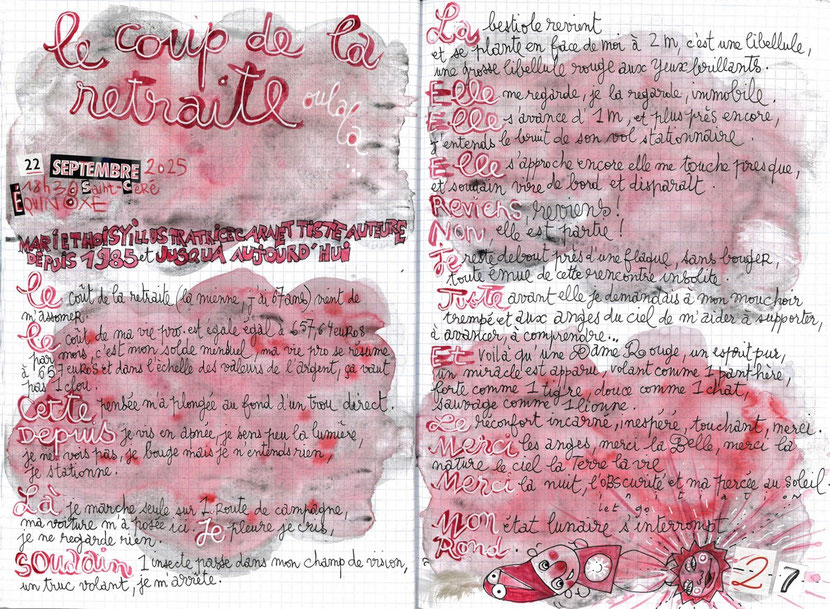 le coup de la
retraite oulala
22 SEPTEMBRE 2025
18h30 SAINT-CERÉ
ÉQUINOXE
MARIETHOISY ILLUSTRATRICE CARNETTISTE AUTEURE
DEPUIS 1985 et JUSQUÀ AUJOURD'HUI
Le coût de la retraite (la mienne, j'ai 67 ans) vient de
m'assomer.
Le coût de ma vie pro. est égale égal à 657,64 euros
par mois, c'est mon solde mensuel, ma vie pro se résume
à 657 euros et dans l'échelle des valeurs de l'argent, ça vaut
pas 1 clou.
Cette pensée m'a plongée au fond d'un trou direct.
Depuis je vis en apnée, je sens peu la lumière,
je ne vois pas, je bouge mais je n'entends rien,
je stationne.
Là je marche seule sur 1 Route de campagne,
ma voiture m'a posée ici. Je pleure je cris,
je ne regarde rien.
SOUdain 1 insecte passe dans mon champ de vision,
un truc volant, je m'arrête.
La bestiole revient
et se plante en face de moi à 2 m, c'est une libellule,
une grosse libellule rouge aux yeux brillants.
Elle me regarde, je la regarde, immobile.
Elle s'avance d'1m, et plus près encore,
j'entends le bruit de son vol stationnaire.
Elle s'approche encore elle me touche presque,
et soudain vire de bord et disparaît.
Reviens reviens!
Non elle est partie!
Je reste debout près d'une flaque, sans bouger,
toute émue de cette rencontre insolite.
Juste avant elle je demandais à mon mouchoir
trempé et aux anges du ciel de m'aider à supporter,
à avancer, à comprendre...
Et voilà qu'une Dame Rouge, un esprit pur,
un miracle est apparu, volant comme 1 panthère,
forte comme 1 tigre, douce comme 1 chat,
sauvage comme 1 lionne.
Le réconfort incarné, inespéré, touchant, merci.
Merci les anges, merci la Belle, merci la
nature le ciel la Terre la vie
Merci la nuit, l'obscurité et ma percée au soleil.
let go
Mon état lunaire s'interrompt
Rond.
27